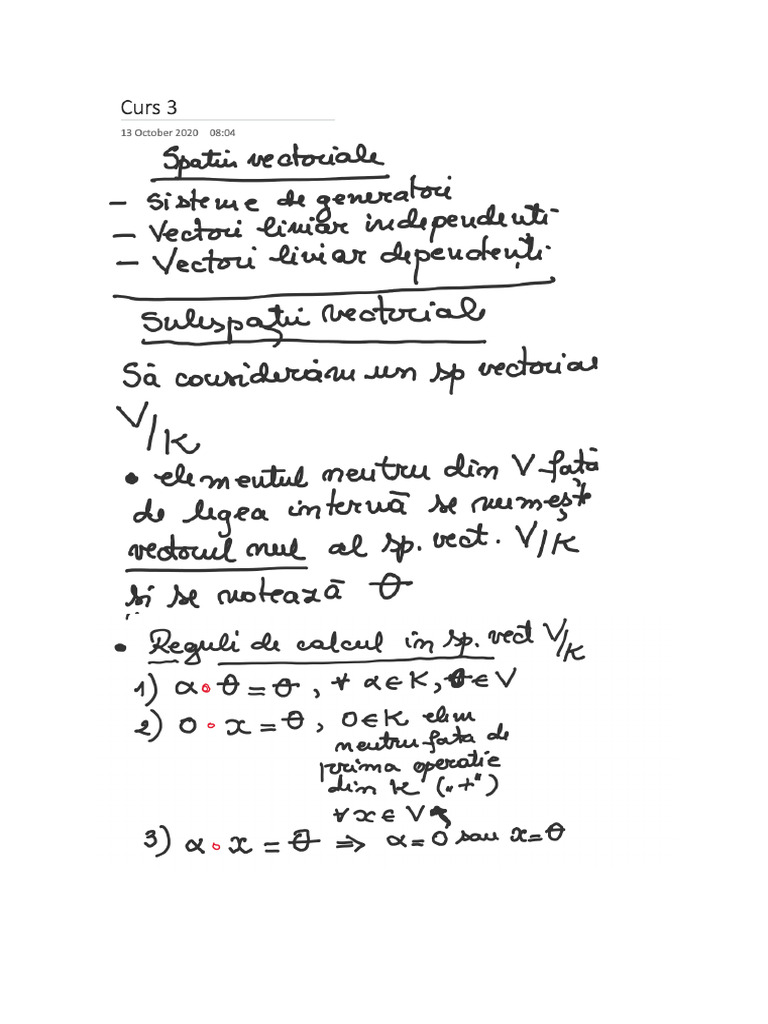 Curs 3
13 October 2020 08:04
Spatii vectoriale
- Sisteme de generatori
- Vectori liniar independenti
- Vectori liniar dependenți
Subspații vectoriale
Să considerăm un sp vectorial
V/K
• elementul neutru din V față
de legea internă se numește
vectorul nul al sp. vect. V/K
și se notează θ
• Reguli de calcul in sp. vect V/K
1) α • θ = θ, ∀ α ∈ K, θ ∈ V
2) 0 • x = θ, 0 ∈ K elem
neutru fata de
prima operatie
din K („+")
∀ x ∈ V
3) α • x = θ ⇒ α = 0 sau x = θ